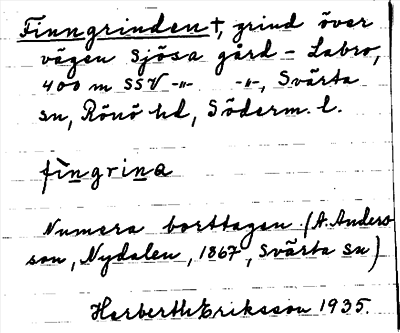 Finngrinden †, grind över
vägen Sjösa gård - Labro,
400 m SSV -"- -"-, Svärta
sn, Rönö hd, Söderm. l.
fìngrina
Numera borttagen (A. Anders-
son, Nydalen, 1867, Svärta sn)
Herberth Eriksson 1935.